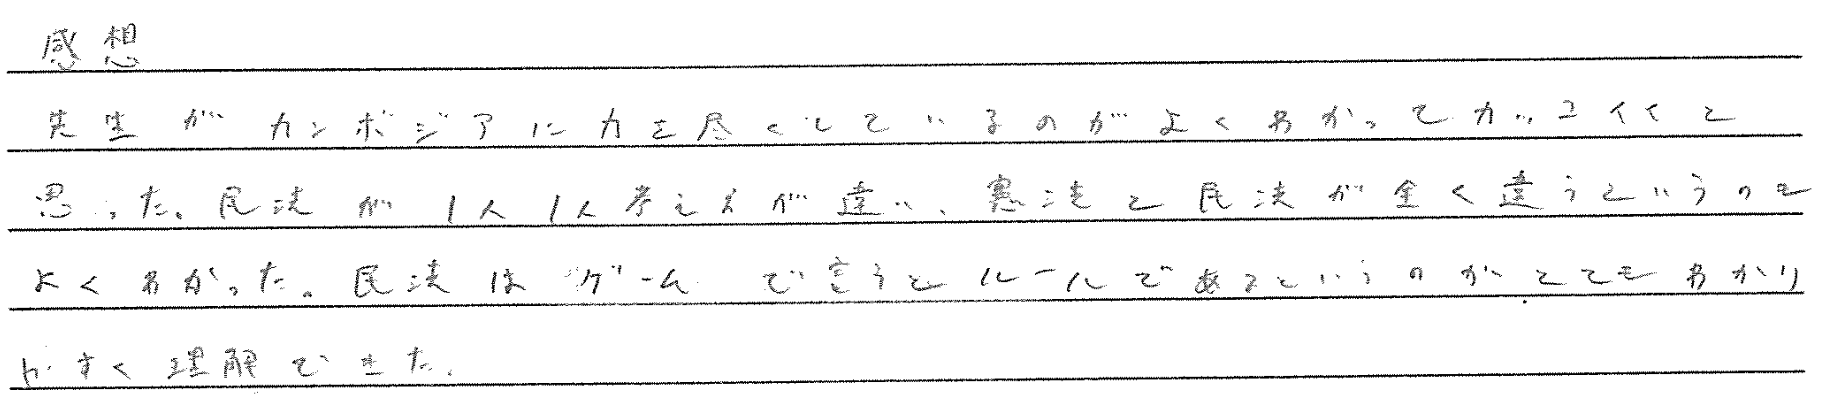 感想
先生がカンボジアに力を尽くしているのがよくわかってカッコイイと
思った。民法が1人1人考え方が違い、憲法と民法が全く違うというのを
よくわかった。民法はゲームで言うとルールであるというのがとてもわかり
やすく理解できた。